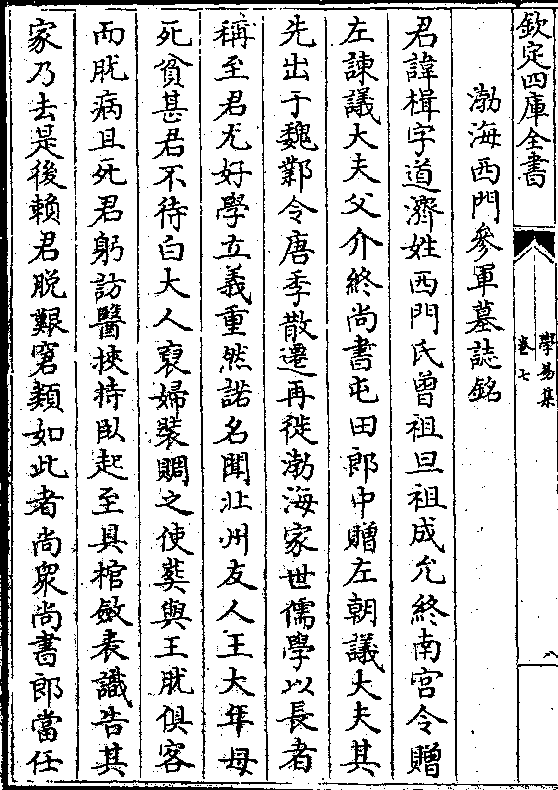 欽定四庫全書
學易集
卷七
八
渤海西門參軍墓誌銘
君諱楫字道濟姓西門氏曾祖旦祖成允終南宫令贈
左諫議大夫父介終尚書屯田郎中贈左朝議大夫其
先出于魏鄴令唐季散遷再徙渤海家世儒學以長者
稱至君尤好學立義重然諾名聞壯州友人王大年母
死貧甚君不待白大人裒婦裝賙之使葬與王肬俱客
而肬病且死君躬訪醫挾持臥起至具棺斂表識告其
家乃去是後賴君脫艱窘類如此者尚衆尚書郎當任